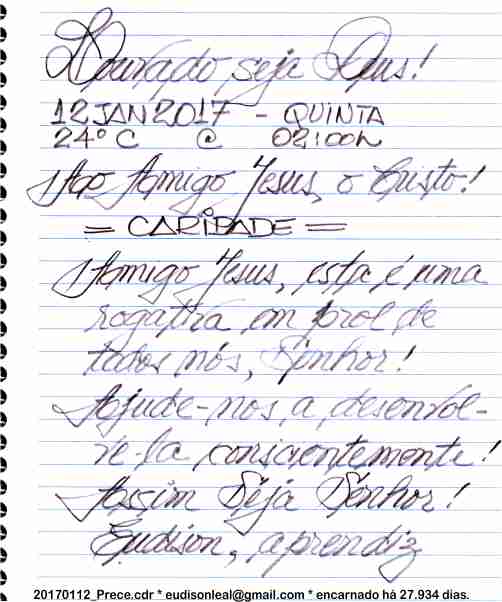 Louvado seja Deus!
12JAN2017 - QUINTA
24°C C 02:00h
Ao Amigo Jesus, o Cristo!
= CARIDADE =
Amigo Jesus, esta é uma
rogativa em prol de
todos nós, Senhor!
Ajude-nos a desenvol-
vê-la conscientemente!
Assim Seja Senhor!
Eudison, aprendiz
20170112_Prece.cdr * eudisonleal@gmail.com * encarnado há 27.934 dias.